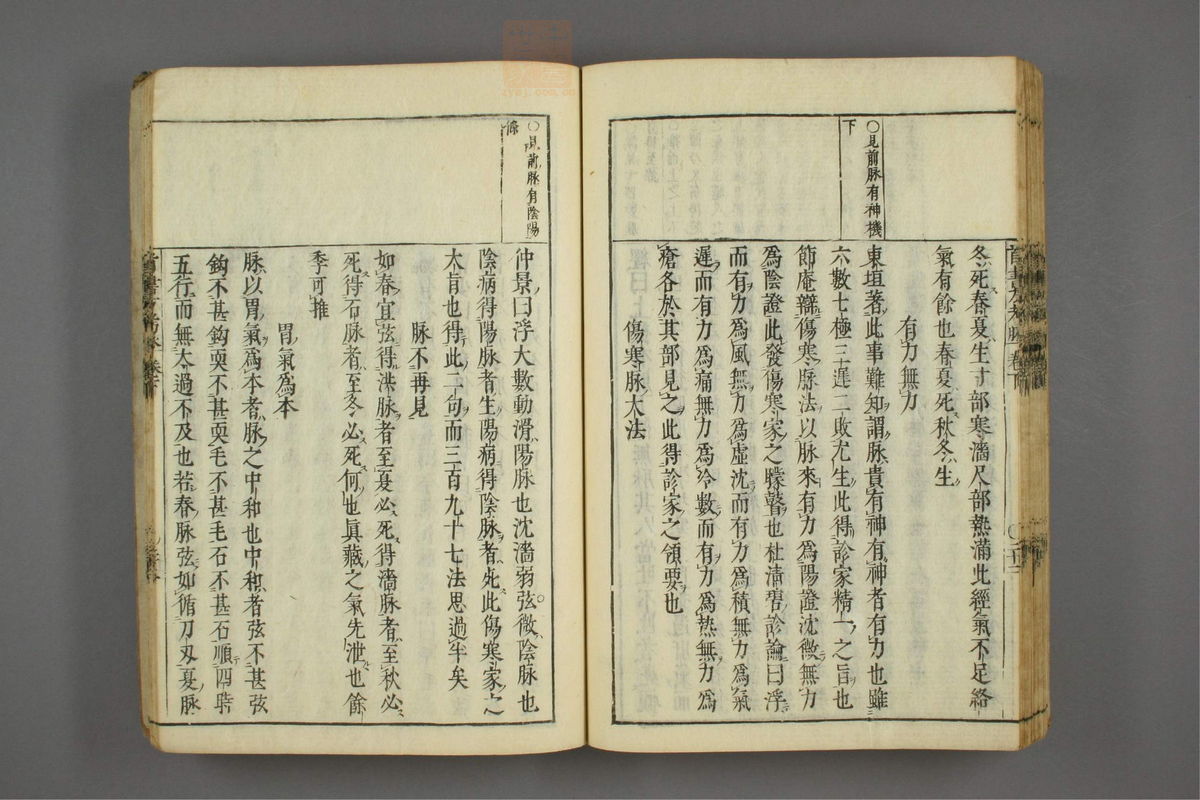 ○見前脉有神機
下
冬死春夏生寸部寒濇尺部熱滿此經氣不足絡
氣有餘也春夏死秋冬生
有力無力
東垣著此事難知謂脉貴有神有神者有力也雖
六數七極三遲二敗尤生此得診家精一之旨也
節庵辯傷寒脉法以脉來有力爲陽證沈微無力
爲陰證此發傷寒家之矇瞽也杜淸碧診論曰浮
而有力爲風無力爲虛沈而有力爲積無力爲氣
遲而有力爲痛無力爲冷數而有力爲熱無力爲
瘡各於其部見之此得診家之領要也
傷寒脉大法
○見前脉有陰陽
條
仲景曰浮大數動滑陽脉也沈濇弱弦微陰脉也
陰病得陽脉者生陽病得陰脉者死此傷寒家之
大旨也得此二句而三百九十七法思過半矣
脉不再見
如春宜弦得洪脉者至夏必死得濇脉者至秋必
死得石脉者至冬必死何也眞藏之氣先泄也餘
季可推
胃氣爲本
脉以胃氣爲本者脉之中和也中和者弦不甚弦
鈎不甚鈎耎不甚耎毛不甚毛石不甚石順四時
五行而無太過不及也若春脉弦如循刀刃夏脉